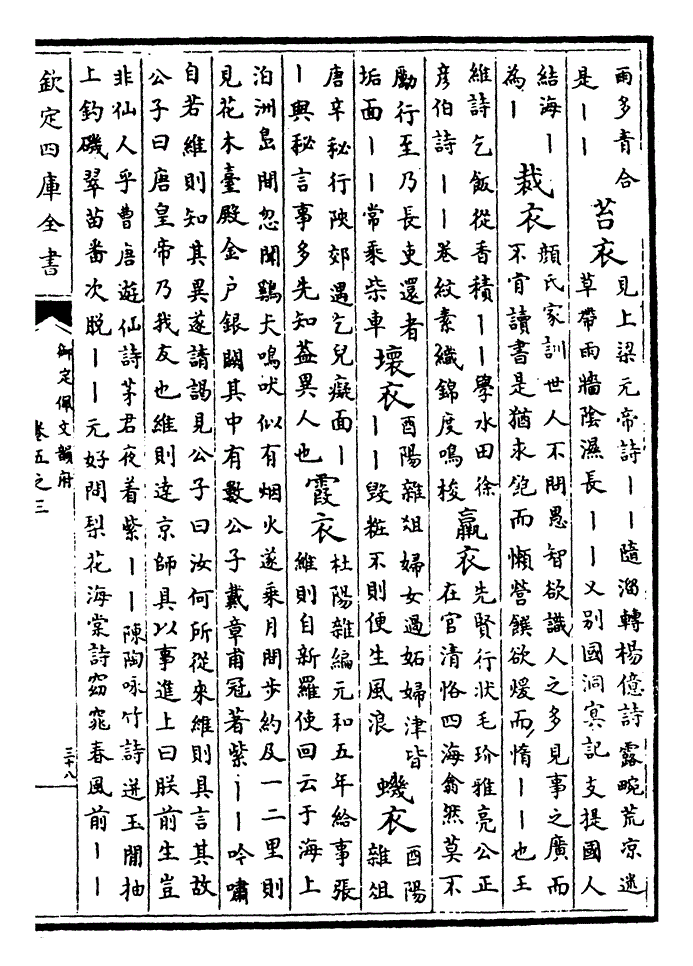 雨多青合
是丨丨
苔衣
見上梁元帝詩丨丨隨溜轉楊億詩露畹荒凉迷
草帶雨牆陰濕長丨丨又别國洞冥記支提國人
結海丨
為丨
裁衣
顔氏家訓世人不問愚智欲識人之多見事之廣而
不肯讀書是猶求飽而懶營饌欲煖而惰丨丨也王
維詩乞飯從香積丨丨學水田徐
彦伯詩丨丨卷紋素織錦度鳴梭
羸衣
先賢行狀毛玠雅亮公正
在官清恪四海翕然莫不
勵行至乃長吏還者
垢面丨丨常乘柴車
壞衣
酉陽雜俎婦女過妬婦津皆
丨丨毁粧不則便生風浪
蟣衣
酉陽
雜俎
唐辛秘行陜郊遇乞兒癡面丨
丨與秘言事多先知葢異人也
霞衣
杜陽雜編元和五年給事張
維則自新羅使回云于海上
泊洲島間忽聞鷄犬鳴吠似有烟火遂乗月間步約及一二里則
見花木臺殿金户銀闕其中有數公子戴章甫冠著紫丨丨吟嘯
自若維則知其異遂請謁見公子曰汝何所從來維則具言其故
公子曰唐皇帝乃我友也維則達京師具以事進上曰朕前生豈
非仙人乎曹唐遊仙詩茅君夜着紫丨丨陳陶咏竹詩迸玉閒抽
上釣磯翠苗番次脱丨丨元好問梨花海棠詩窈窕春風前丨丨
欽定四庫全書
御定佩文韻府
卷五之三
三十八